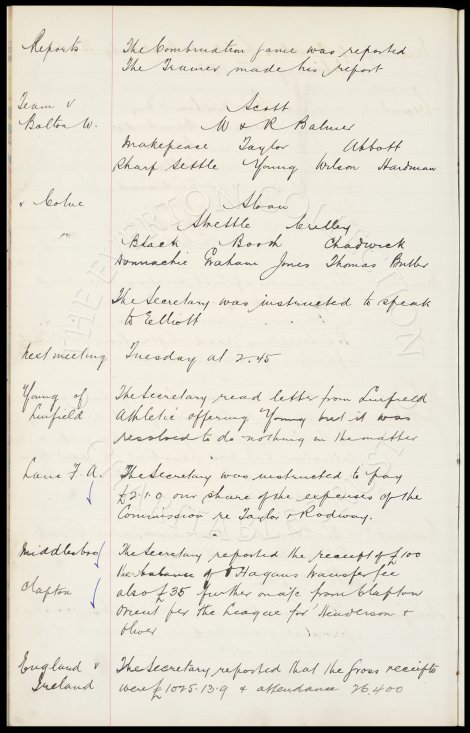 Reports The Combination game was reported
The Trainer made his report
Team v Scott
Bolton W. W & R Balmer
Makepeace Taylor Abbott
Sharp Settle Young Wilson Hardman
v Colne Sloan
Strettle Crelley
Black Booth Chadwick
Donnachie Graham Jones Thomas Butler
The Secretary was instructed to speak
to Elliott
Next meeting Tuesday at 2.45
Young of The Secretary read letter from Linfield
Linfield Athletic offering Young but it was
resolved to do nothing in the matter
Lanc F.A. The Secretary was instructed to pay
£2.1.0 our share of the expenses of the
Commission re Taylor & Rodway.
Middlesbro The Secretary reported the receipt of £100
the balance of O'Hagans transfer fee
Clapton also £35 further on a/c from Clapton
Orient per the League for Henderson &
Oliver
England v The Secretary reported that the Gross receipts
Ireland were £1025.13.9 & attendance 26,400